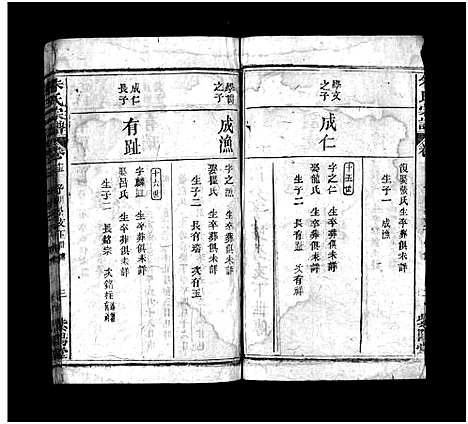 復娶張氏生卒葬俱未詳
生子一 成漁
學文
之子
成仁
十五世
字之仁 生卒葬俱未詳
娶龍氏 生卒葬俱未詳
生子二 長有趾 次有祥
之子
成漁
字之漁 生卒葬俱未詳
娶瞿氏 生卒葬俱未詳
生子二 長有瑞 次有玉
成仁
長子
有趾
十六世
字麟趾 生卒葬俱未詳
娶呂氏 生卒葬俱未詳
生子二 長銘宗
朱氏宗譜
紫陽堂